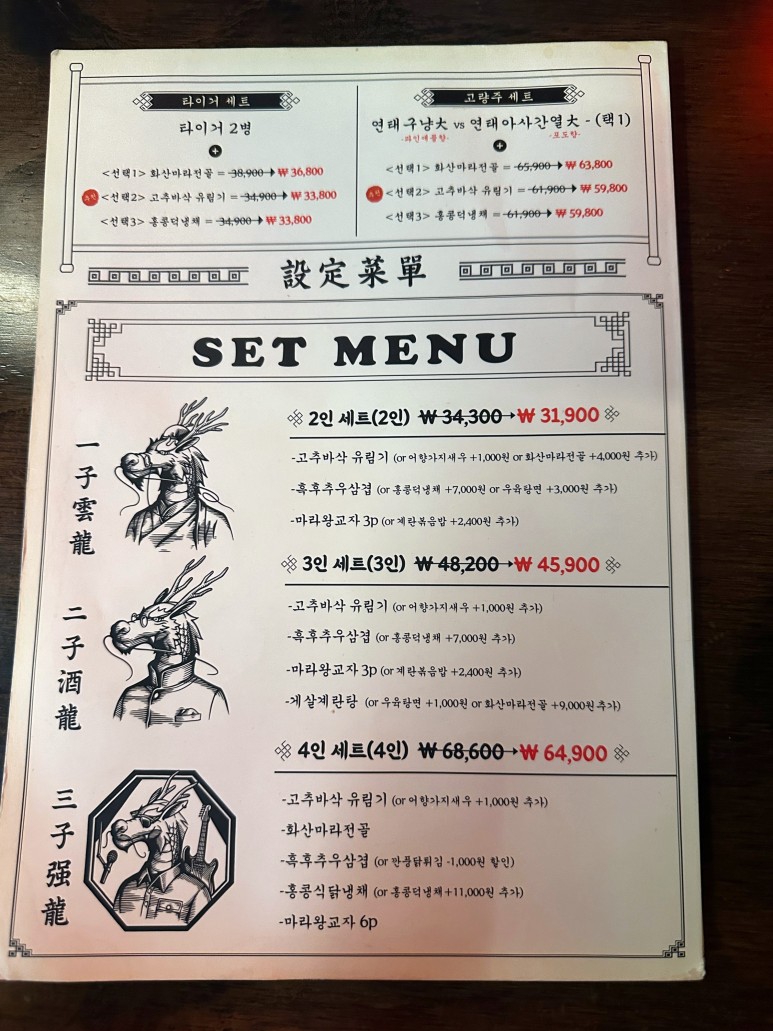 타이거 세트
타이거 2병
+
<선택1> 화산마라전골 = 38,900 → ₩ 36,800
추천 <선택2> 고추바삭 유림기 = 34,900 → ₩ 33,800
<선택3> 홍콩덕냉채 = 34,900 → ₩ 33,800
고량주 세트
연태구냥大 vs 연태아사간열大 - (택1)
-파인애플향- -포도향-
+
<선택1> 화산마라전골 = 65,900 → ₩ 63,800
추천 <선택2> 고추바삭 유림기 = 61,900 → ₩ 59,800
<선택3> 홍콩덕냉채 = 61,900 → ₩ 59,800
設定菜單
SET MENU
一子雲龍
2인 세트(2인) ₩ 34,300 → ₩ 31,900
-고추바삭 유림기 (or 어향가지새우 +1,000원 or 화산마라전골 +4,000원 추가)
-흑후추우삼겹 (or 홍콩덕냉채 +7,000원 or 우육탕면 +3,000원 추가)
-마라왕교자 3p (or 계란볶음밥 +2,400원 추가)
二子酒龍
3인 세트(3인) ₩ 48,200 → ₩ 45,900
-고추바삭 유림기 (or 어향가지새우 +1,000원 추가)
-흑후추우삼겹 (or 홍콩덕냉채 +7,000원 추가)
-마라왕교자 3p (or 계란볶음밥 +2,400원 추가)
-게살계란탕 (or 우육탕면 +1,000원 or 화산마라전골 +9,000원추가)
三子强龍
4인 세트(4인) ₩ 68,600 → ₩ 64,900
-고추바삭 유림기 (or 어향가지새우 +1,000원 추가)
-화산마라전골
-흑후추우삼겹 (or 깐풍닭튀김 -1,000원 할인)
-홍콩식닭냉채 (or 홍콩덕냉채 +11,000원 추가)
-마라왕교자 6p